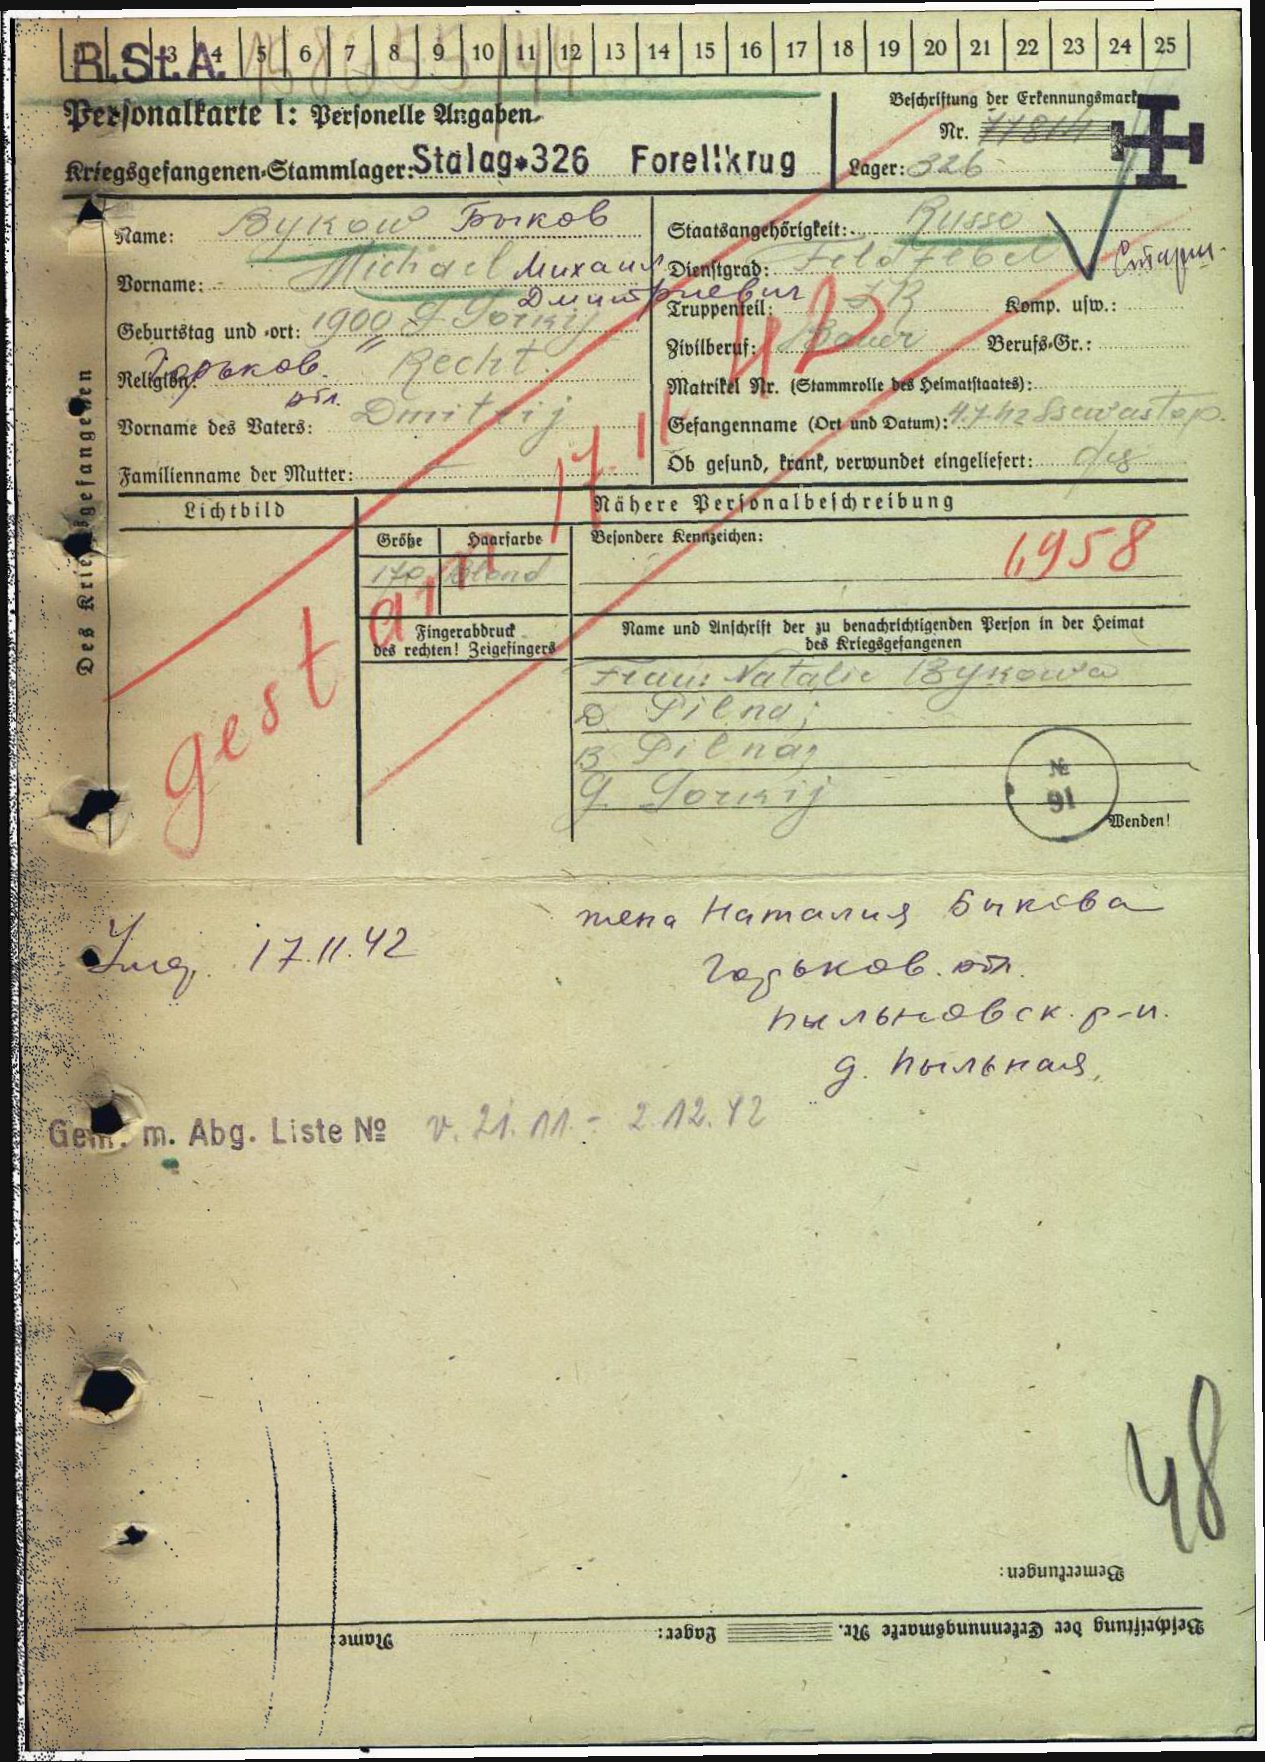 R.St.A.
3 4 5 6 7 8 9 10 11 12 13 14 15 16 17 18 19 20 21 22 23 24 25
Personalkarte I: Personelle Angaben.
Kriegsgefangenen-Stammlager: Stalag 326 Forellkrug
Beschriftung der Erkennungsmarke
Nr. 71814
Lager: 326
Des Kriegsgefangenen
Name: Bykow Быков
Vorname: Michael Михаил
Дмитриевич
Geburtstag und -ort: 1900 G. Gorkij
Горьков.
обл.
Religion: Recht.
Vorname des Vaters: Dmitrij
Familienname der Mutter: —
Staatsangehörigkeit: Russe
Dienstgrad: Feldfebel Старш.
Truppenteil: I R Komp. usw.:
Zivilberuf: Bauer Berufs-Gr.:
Matrikel Nr. (Stammrolle des Heimatstaates):
Gefangenname (Ort und Datum): 4.7.42 Ssewastop.
Ob gesund, krank, verwundet eingeliefert: ges
Lichtbild
Nähere Personalbeschreibung
Größe Haarfarbe Besondere Kennzeichen:
170 Blond
6958
gest am 17.11.42
Fingerabdruck
des rechten! Zeigefingers
Name und Anschrift der zu benachrichtigenden Person in der Heimat
des Kriegsgefangenen
Frau: Natalie Bykowa
D. Pilnaj
B Pilnaj
G. Gorkij
№
91
Wenden!
жена Наталия Быкова
17.11.42
Горьков. обл.
Пыльновск. р-н.
д. Пыльная,
Gem. m. Abg. Liste № v. 21.11.- 2.12.42
48
Bemerkungen:
Beschriftung der Erkennungsmarke Nr. Lager: Name: